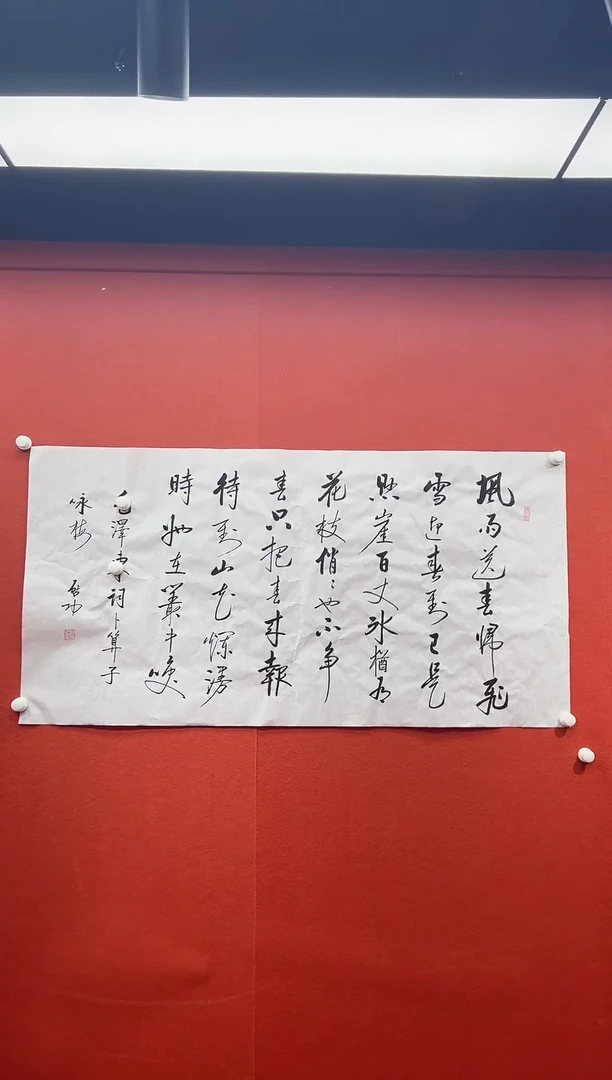 風雨送春歸飛
雪迎春到已是
懸崖百丈冰猶有
花枝俏〻也不争
春只把春來報
待到山花爛漫
時她在叢中咲
毛澤東詞卜算子
咏梅 启功